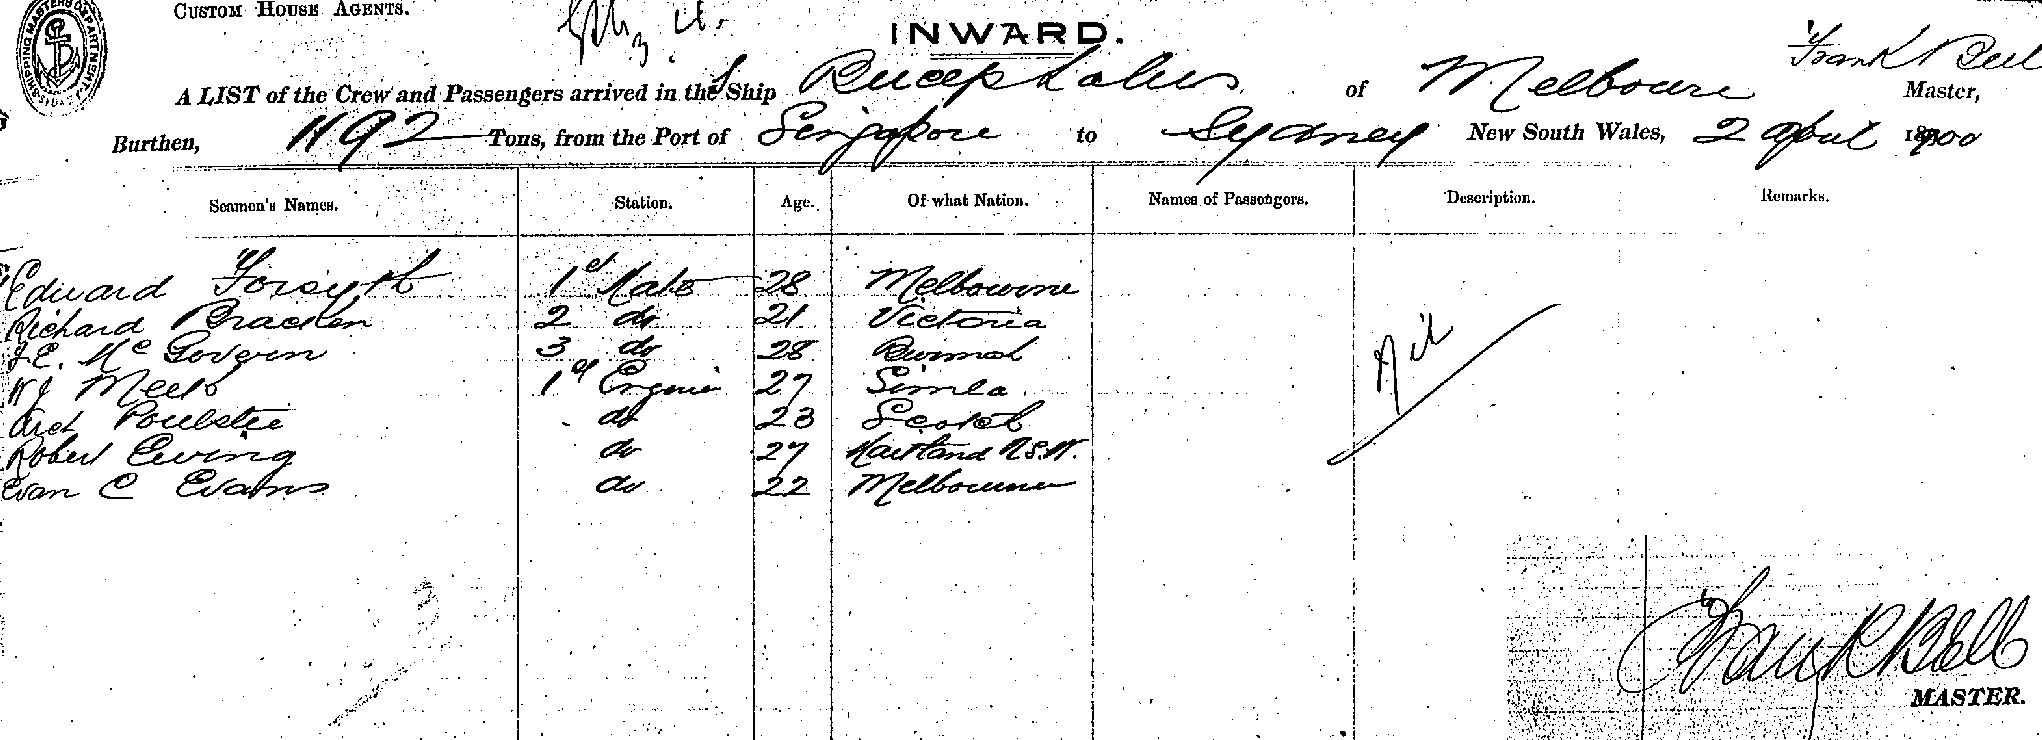 CUSTOM HOUSE AGENTS.
INWARD.
SHIPPING MASTERS DEPARTMENT SYDNEY
Frank Bell
A LIST of the Crew and Passengers arrived in the S Ship Bucephalus of Melboure Master,
Burthen, 1192 Tons, from the Port of Singapore to Sydney New South Wales, 2 April 1900
Seamen's Names. Station. Age. Of what Nation. Names of Passengers. Description. Remarks.
Edward Forsyth 1st Mate 28 Melbourne
Richard Bracken 2 do 21 Victoria
J.E. McGovern 3 do 28 Burmah
W J Meek 1st Engine 27 Simla
Nil
Arch Poulstie do 23 Scotch
Robert Ewing do 27 Maitland N.S.W.
Evan C Evans do 22 Melbourne
Frank Bell
MASTER.